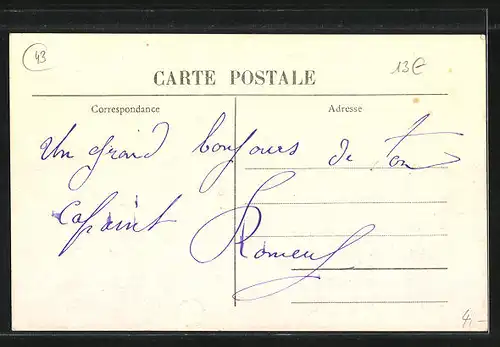 43
13€
CARTE POSTALE
Correspondance
Adresse
Un grand bonjours de ton
Romeuf
4,-